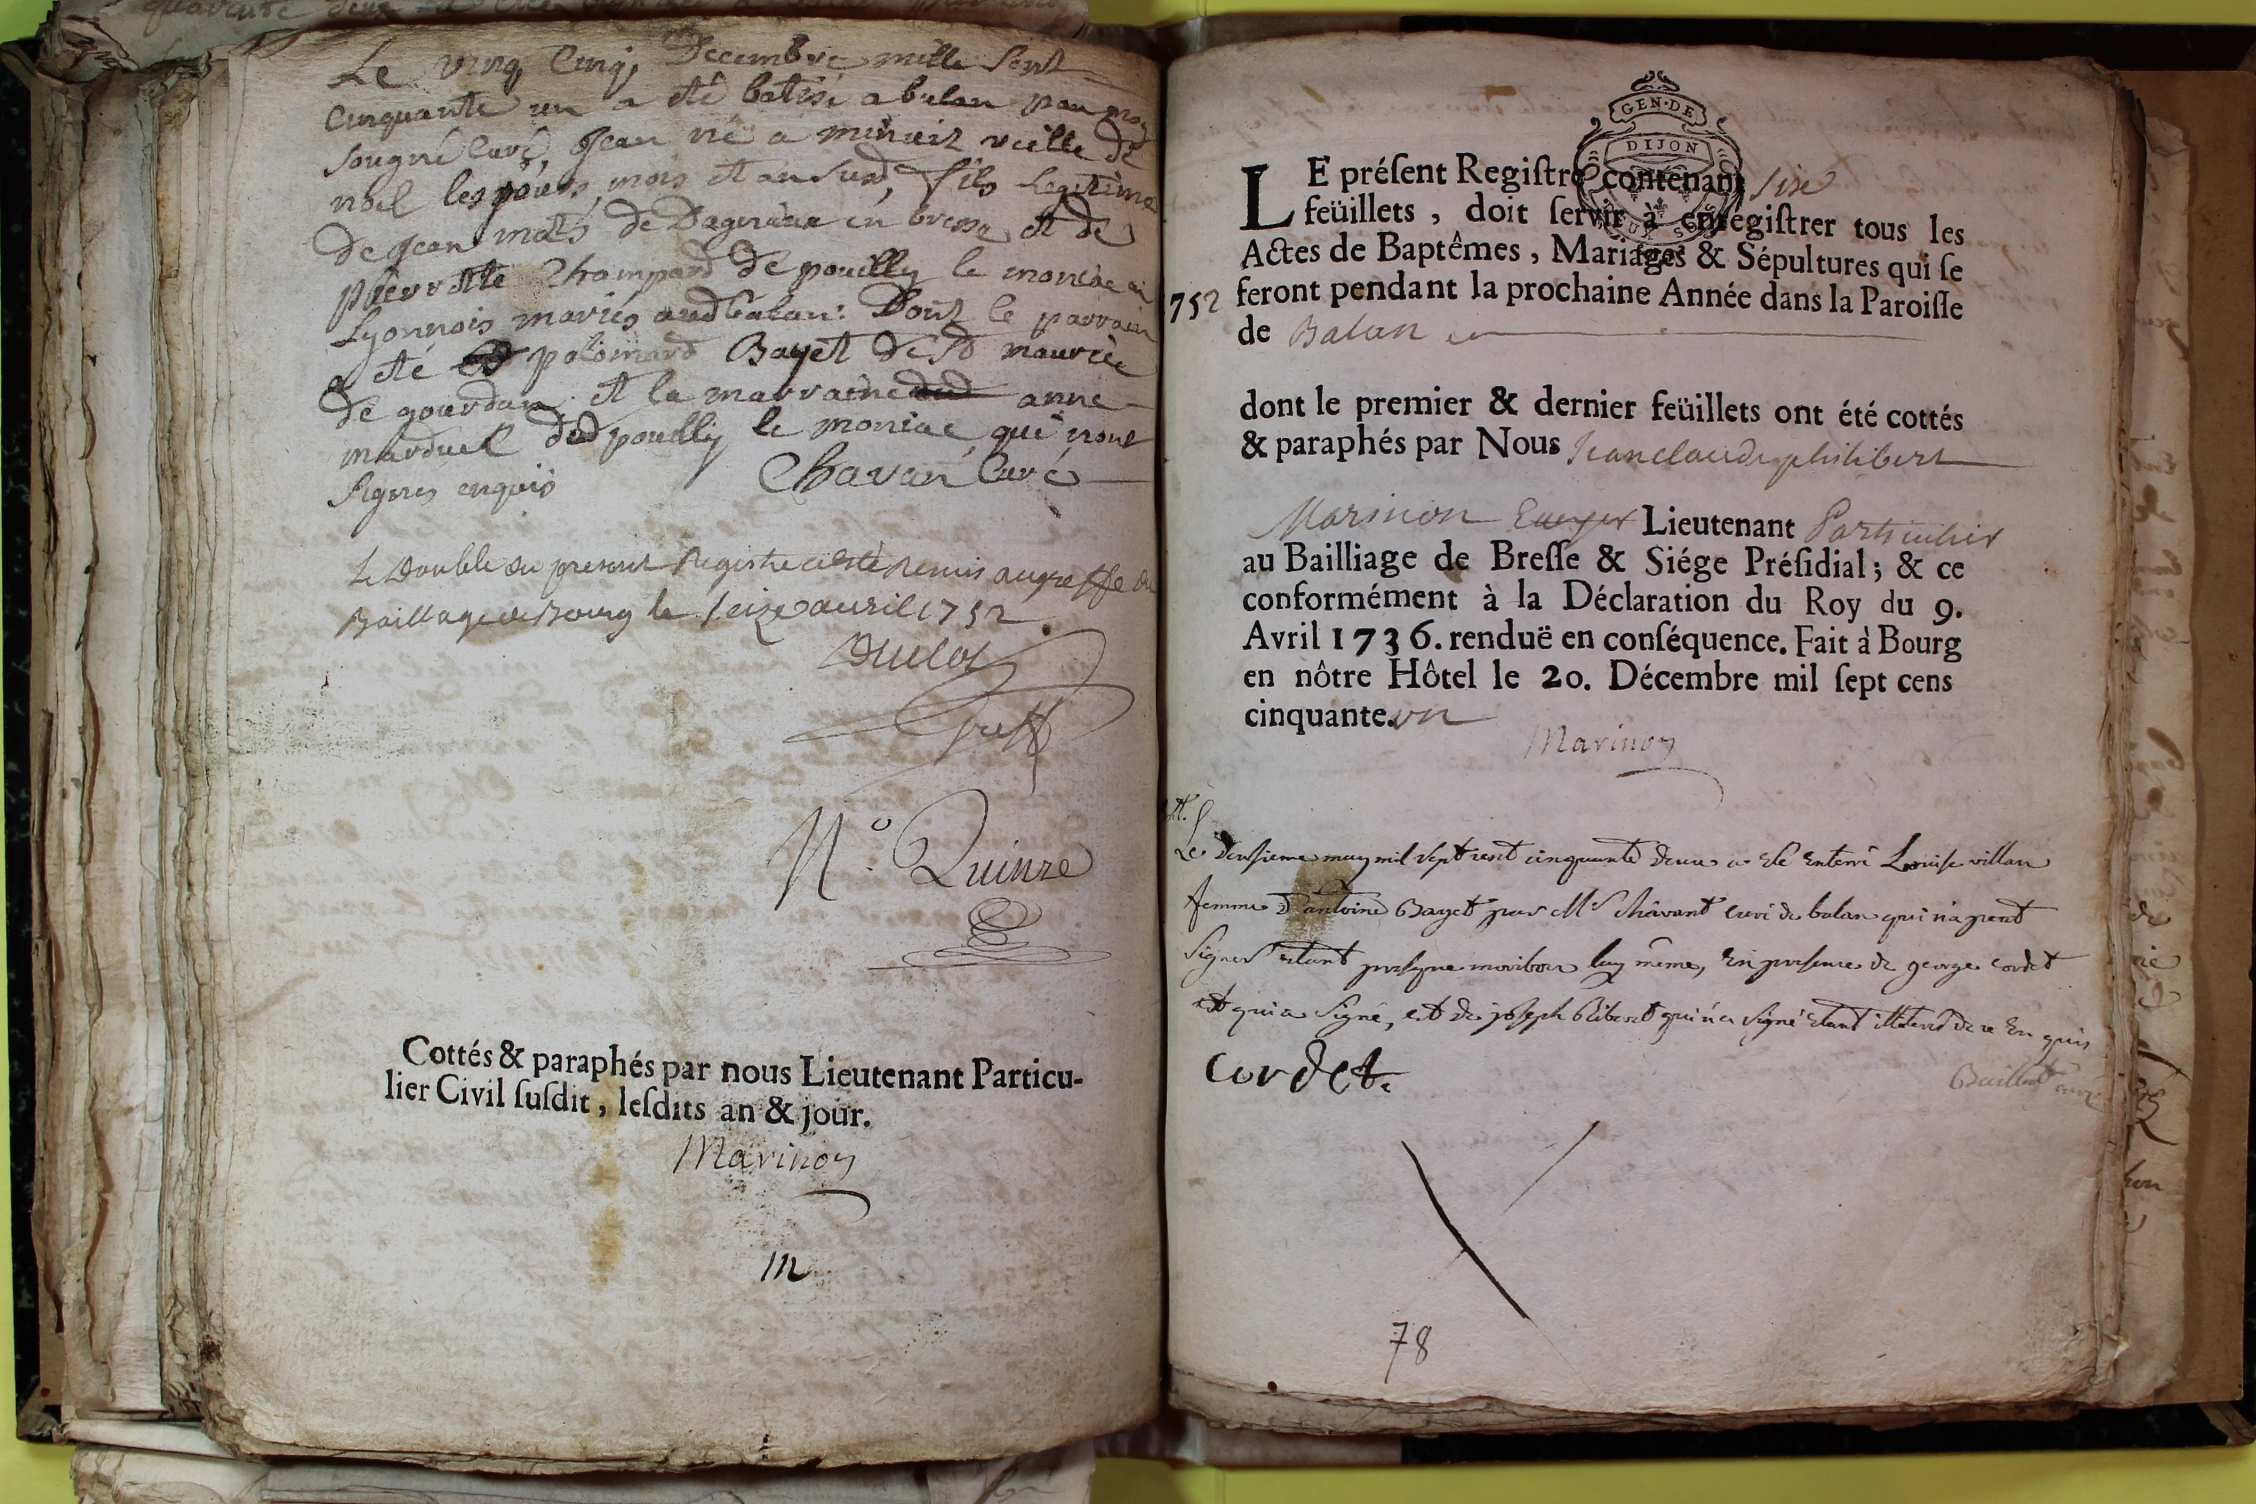 Le vinq Cinq, Decembre mille Sept
cinquante un a été batisé a balan par moy
sougné Curé, Jean né a minuit veille de
noel les jours, mois et an susd, fils Legitime
de Jean de Dagnieux en bresse et de
pierrotte Champard de pouilly le monial en
Lyonnois mariés aud balan: Dont le parrain
a eté polomard Bayet de St maurice
de gourdan, et la marraine anne
marduel dud pouilly le monial, qui n'ont
signes enquis Chavan Curé
Le Double du present Registre a esté remis au greffe du
Baillage de Bourg le seize avril 1752
Duclos
Greff
N.o Quinze
Cottés & paraphés par nous Lieutenant Particu-
lier Civil susdit, lesdits an & jour.
Marinon
m
GEN·DE
DIJON
DEUX SOLS
LE présent Registre contenant six
feüillets, doit servir à enregistrer tous les
Actes de Baptêmes, Mariages & Sépultures qui se
752 feront pendant la prochaine Année dans la Paroisse
de Balan
dont le premier & dernier feüillets ont été cottés
& paraphés par Nous Jean claude philibert
Marinon Lieutenant Particulier
au Bailliage de Bresse & Siége Présidial; & ce
conformément à la Déclaration du Roy du 9.
Avril 1736. renduë en conséquence. Fait à Bourg
en nôtre Hôtel le 20. Décembre mil sept cens
cinquante. un
Marinon
Le deusieme may mil sept cent cinquante deux a ete enterré Louise villan
femme d'antoine Bayet par Mr Chavant curé de balan qui n'a peut
signer etant presque luy même, en presence de george cordet
qui a signé, et de joseph qui n'a signé etant illiteré de ce enquis
cordet.
Baillat curé
78